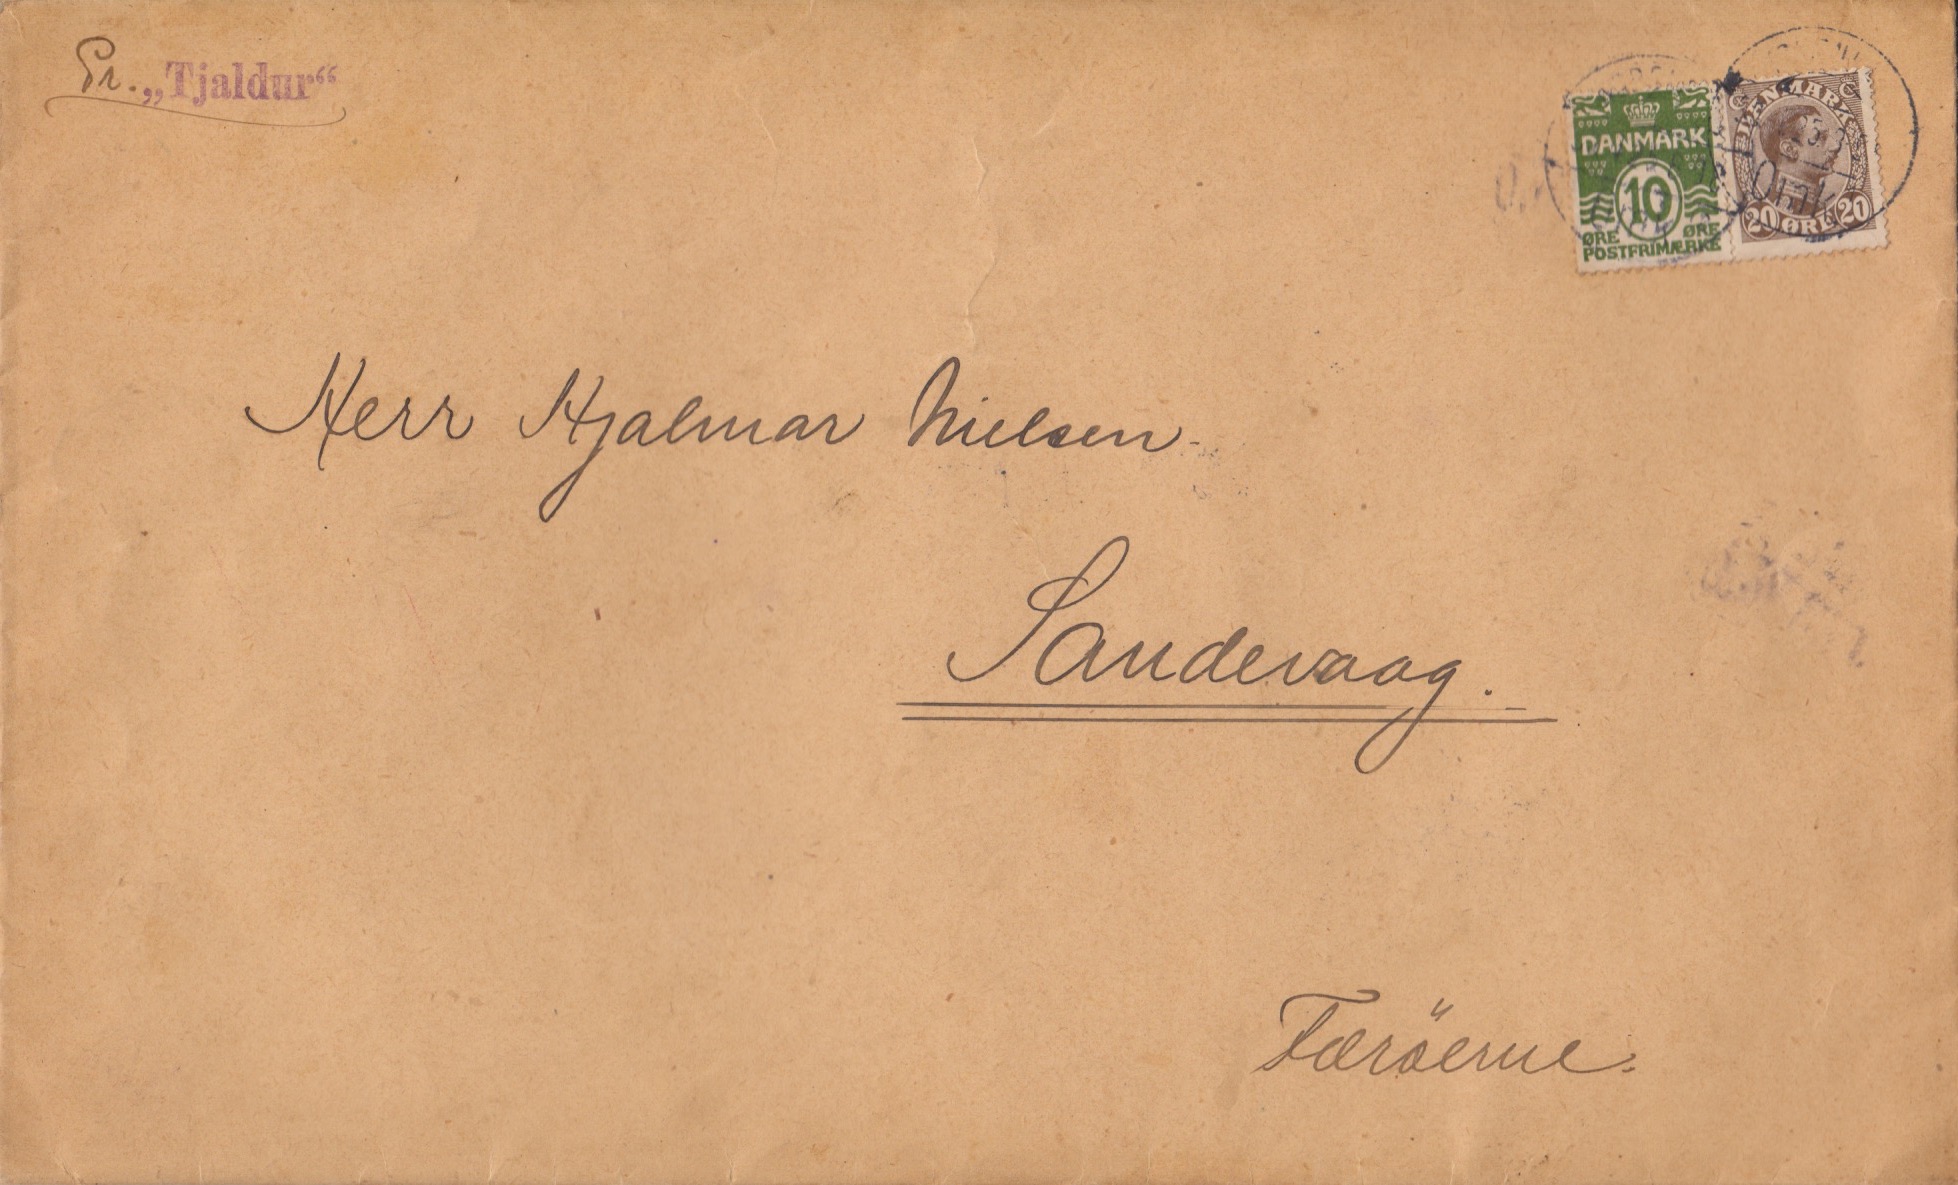 Pr. „Tjaldur“
DANMARK
10
ØRE ØRE
POSTFRIMÆRKE
DANMARK
20 ØRE 20
Herr Hjalmar Nielsen
Sandevaag.
Færöerne.